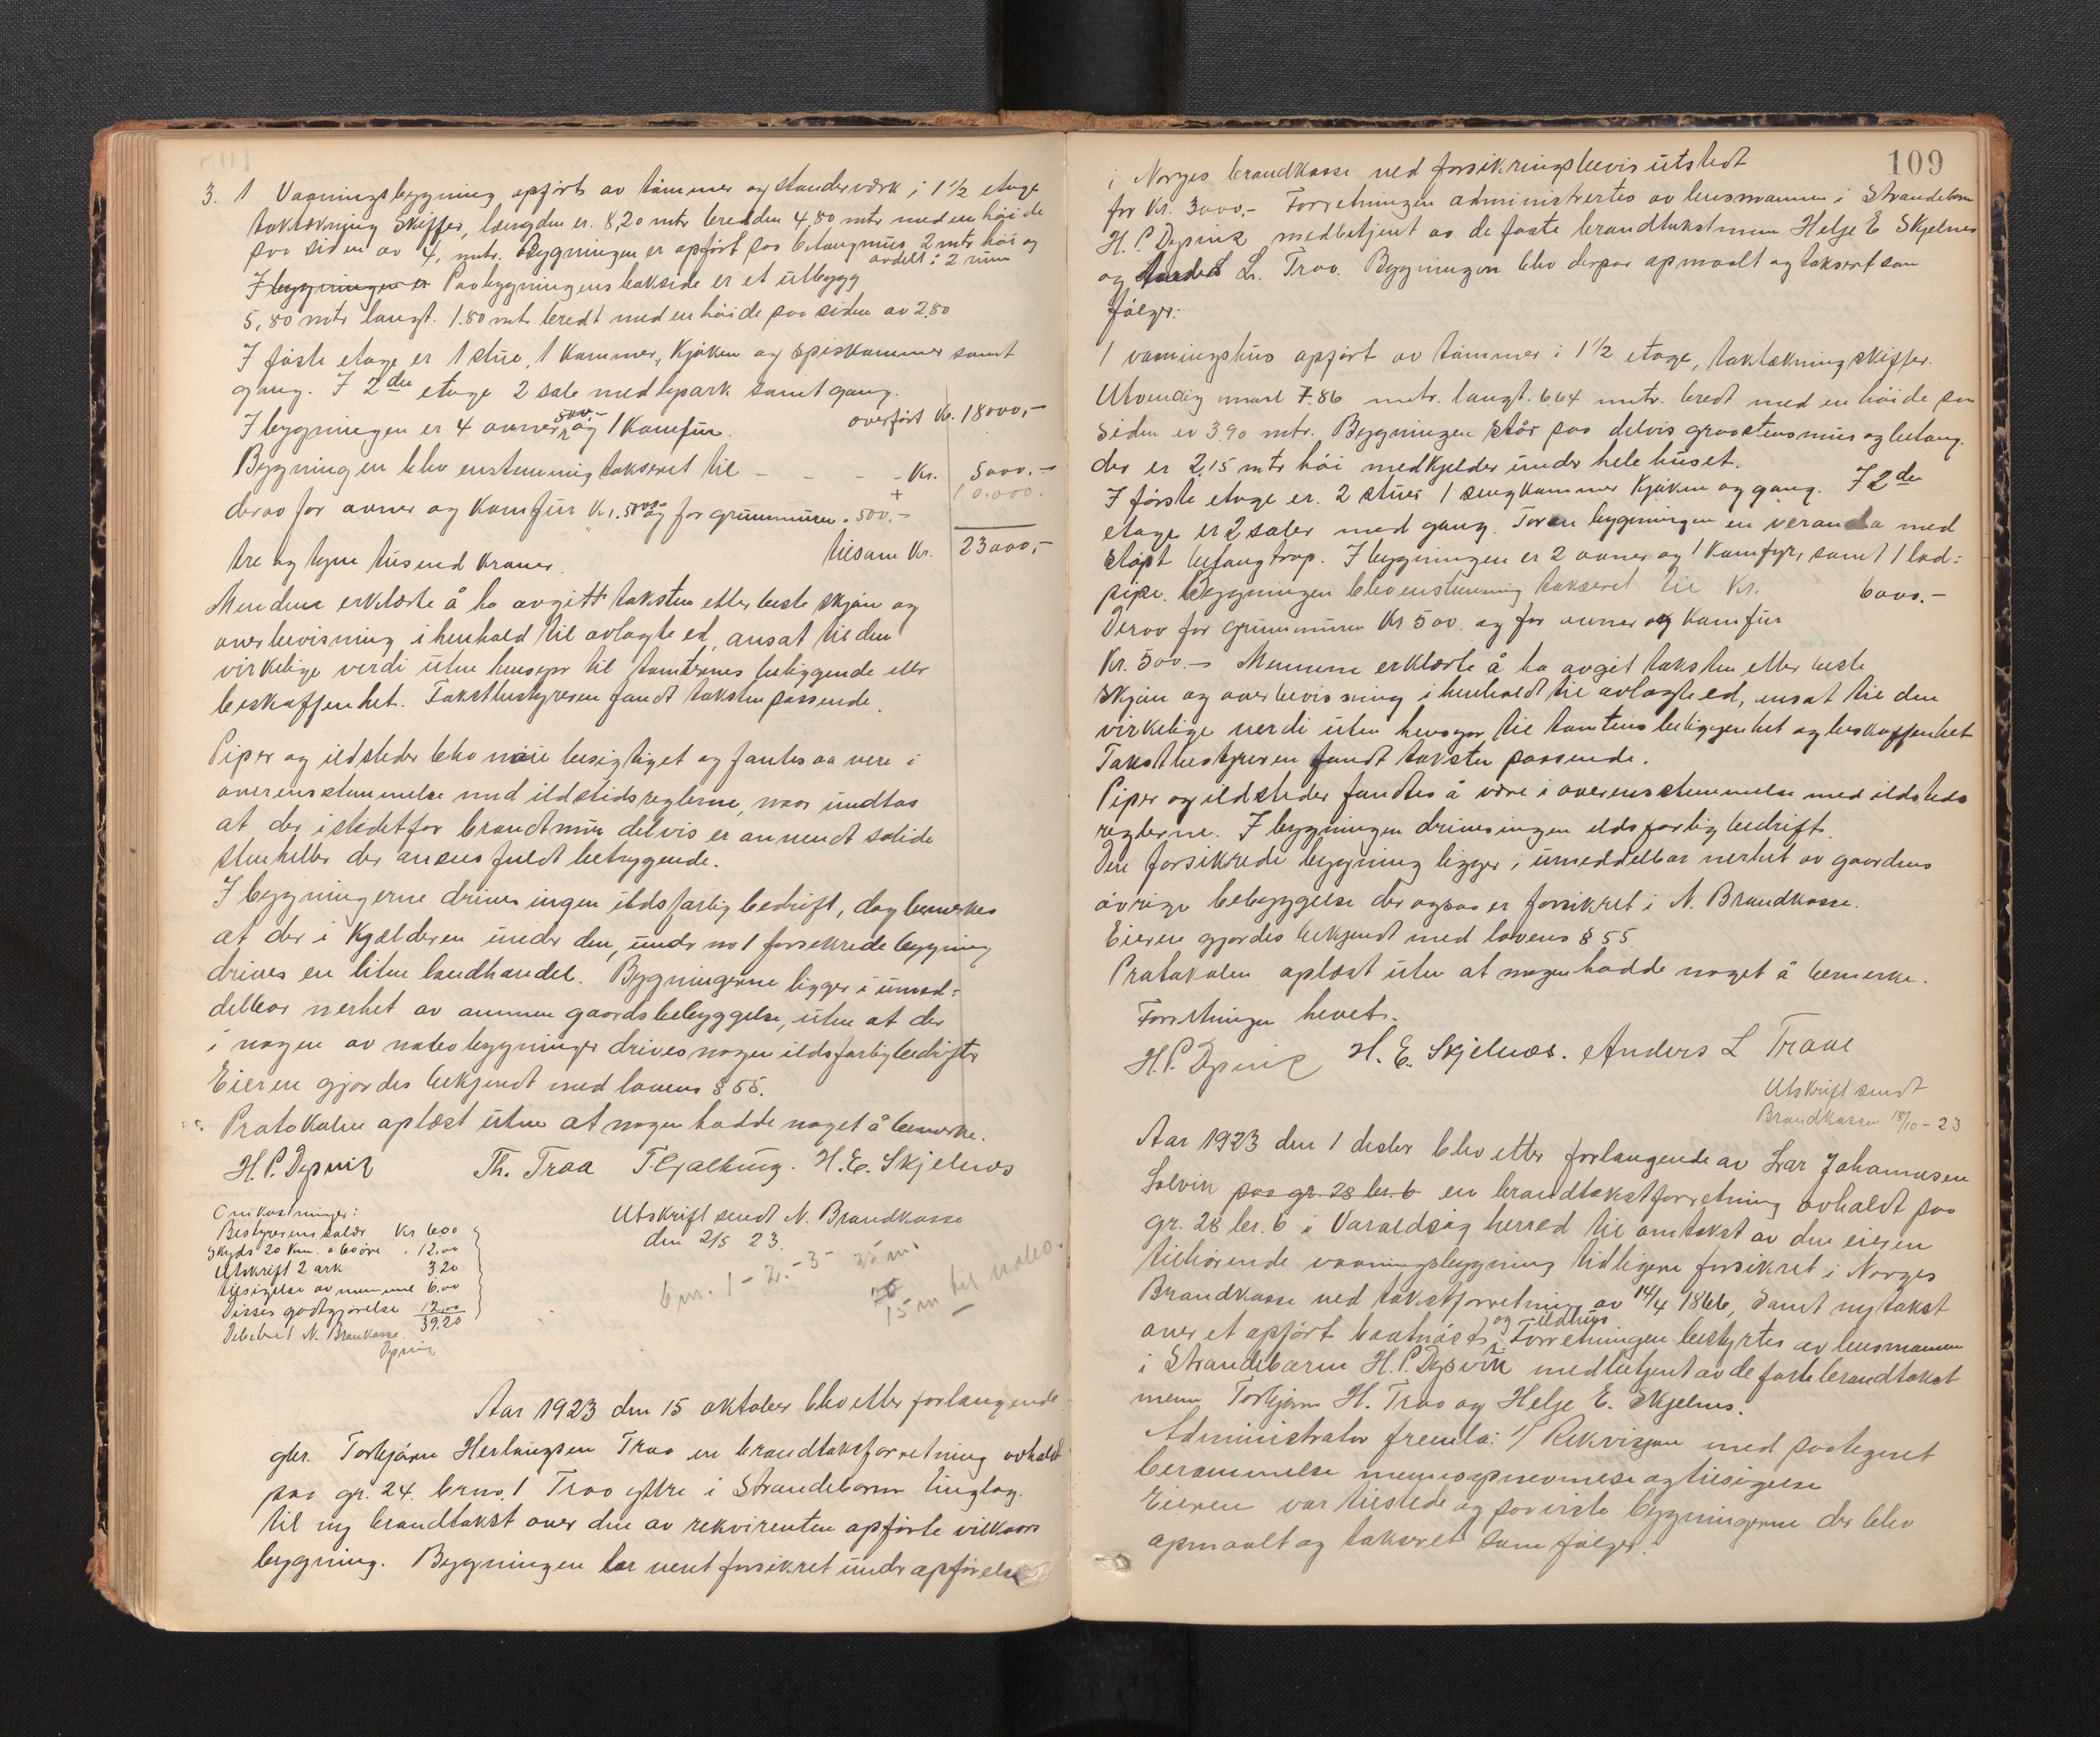 3. 1 Vaaningsbygning opført av tømmer og standerværk i 1 1/2 etage
taktækning Skiffer, længden er. 8,20 mtr bredden 4,80 mtr med en høide
paa siden av 4, mtr. Bygningen er opført paa betongmur, 2 mtr høi og
avdelt i 2 rum
I bygningen er Paa bygningens bakside er et utbygg
5,80 mtr langt. 1.80 mtr bredt med en høide paa siden av 2.80
I føste etage er 1 stue, 1 Kammer, Kjøken og spiskammer samt
gang. I 2den etage 2 sale med lopark samt gang.
I bygningen er 4 ovner 500.- og 1 Komfur.
overført Kr. 18000,-
Bygningen blev enstemmig takseret til - - - - Kr. 5000.-
+ 10.000.
derav for ovner og Komfur Kr. 500 og for grunnmuren. 500.-
tre og tyve tusend kroner. tilsam Kr. 23000,-
Mendene erklærte å ha avgitt taksten etter beste skjøn og
overbevisning i henhold til avlagte ed, ansat til den
virkelige verdi uten hensyn til tomternes beliggende eller
beskaffenhet. Takstbestyreren fandt taksten passende.
Piper og ildsteder blev nøie besigtiget og fantes aa vere i
overensstemmelse med ildstidsreglerne, naar undtas
at der istedetfor brandtmur delvis er anvendt solide
stenheller der ansees fuldt betryggende.
I bygningerne drives ingen ildsfarlig bedrift, dog bemerkes
at der i Kjælderen under den, under no 1 forsekrede bygning
drives en liten landhandel. Bygningerne ligger i umed=
delbar nerhet av annen gaards bebyggelse, uten at der
i nogen av nabobygninger drives nogen ildsfarlig bedrifter
Eieren gjordes bekjendt med lovens § 55.
Protokolen oplæst uten at nogen hadde noget å bemerke.
H. P. Dysvik Th. Traa T. Gjalbung. H. E. Skjelnes
Omkostninger:
Bestyrerens salær Kr 6.00
Skyds 20 Km. a 60 øre . 12.00
Utskrift 2 ark 3.20
tilsigelse av mennene 6.00
Disses godtgjørelse 12.00
39.20
Debeteret N. Brankasse.
Dysvik
Utskrift sendt N. Brandkasse
den 2/5 23.
bm. 1 - 2. - 3 - 25 m.
20
15 m til nabo.
Aar 1923 den 15 oktober blev etter forlangende
gbr. Torbjørn Herlaugsen Traa en brandtakstforretning avholdt
paa gr. 24. brno. 1 Traa ytre i Strandebarm tinglag.
til ny brandtakst over den av rekvirenten opførte vilkaars
bygning. Bygningen har vert forsikret under opførelse
109
i Norges brandkasse ved forsikringsbevis utstedt
for Kr. 3000.- Forretningen administrertes av lensmannen i Strandebarm
H. P. Dysvik medbetjent av de faste brandtakstmenn Helje E Skjelnes
og Anders L. Traa. Bygningen blev derpaa opmaalt og taksert som
følger:
1 vaaningshus opført av tømmer i 1 1/2 etage, taktækning skiffer.
Utvendig maal 7.86 mtr. langt. 6.64 mtr. bredt med en høide paa
siden av 3.90 mtr. Bygningen står paa delvis graastensmur og betong.
der er 2,15 mtr høi med kjelder under hele huset.
I første etage er. 2 stuer 1 sengkammer Kjøken og gang. I 2de
etage er 2 saler med gang. Foran bygningen en veranda med
støpt betongtrap. I bygningen er 2 ovner og 1 Komfyr, samt 1 lod=
pipe. Bygningen blev enstemmig takseret til Kr. 6000.-
Derav for grunnmuren Kr 500. og for ovner og Komfur
Kr. 500.- Mennene erklærte å ha avgit taksten etter beste
Skjøn og overbevisning i henhold til avlagte ed, ansat til den
virkelige verdi uten hensyn til tomtens beliggenhet og beskaffenhet
Takstbestyreren fandt taksten passende.
Piper og ildsteder fandtes å være i overensstemmelse med ildsteds
reglerne. I bygningen drives ingen ildsfarlig bedrift.
Den forsikrede bygning ligger i umeddelbar nerhet av gaardens
øvrige bebyggelse der ogsaa er forsikret i N. Brandkasse.
Eieren gjordes bekjendt med lovens § 55.
Protokolen oplæst uten at nogen hadde noget å bemerke.
Forretningen hevet.
H. P. Dysvik H. E. Skjelnes. Anders L Traae
Utskrift sendt
Brandkassen 18/10 - 23
Aar 1923 den 1 desbr blev etter forlangende av Lar Johannesen
Solvik paa gr. 28 br. 6 en brandtakstforretning avholdt paa
gr. 28 br. 6 i Varaldsøy herred til omtakst av den eieren
tilhørende vaaningsbygning tidligere forsikret i Norges
Brandkasse ved takstforretning av 14/4 1866, samt ny takst
over et opført baatnøst, og ildhus Forretningen bestyrtes av lensmannen
i Strandebarm H. P. Dysvik medbetjent av de faste brandtakst
menn Torbjørn H. Traa og Helje E. Skjelnes.
Administrator fremla: 1/ Rekvisjon med paategnet
berammelse mennsopnevnelse og tilsigelse
Eieren var tilstede og paaviste bygningerne der blev
opmaalt og takseret som følger: